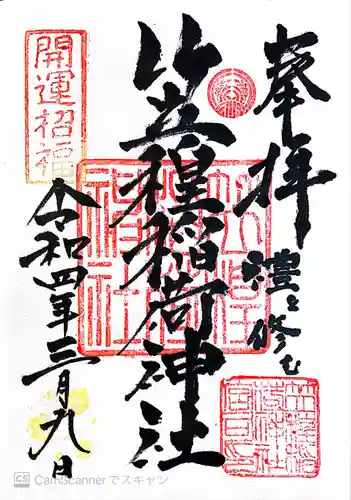 奉拝
禮を修む
笠䅣稲荷神社
令和四年三月九日
開運招福
CS CamScannerでスキャン